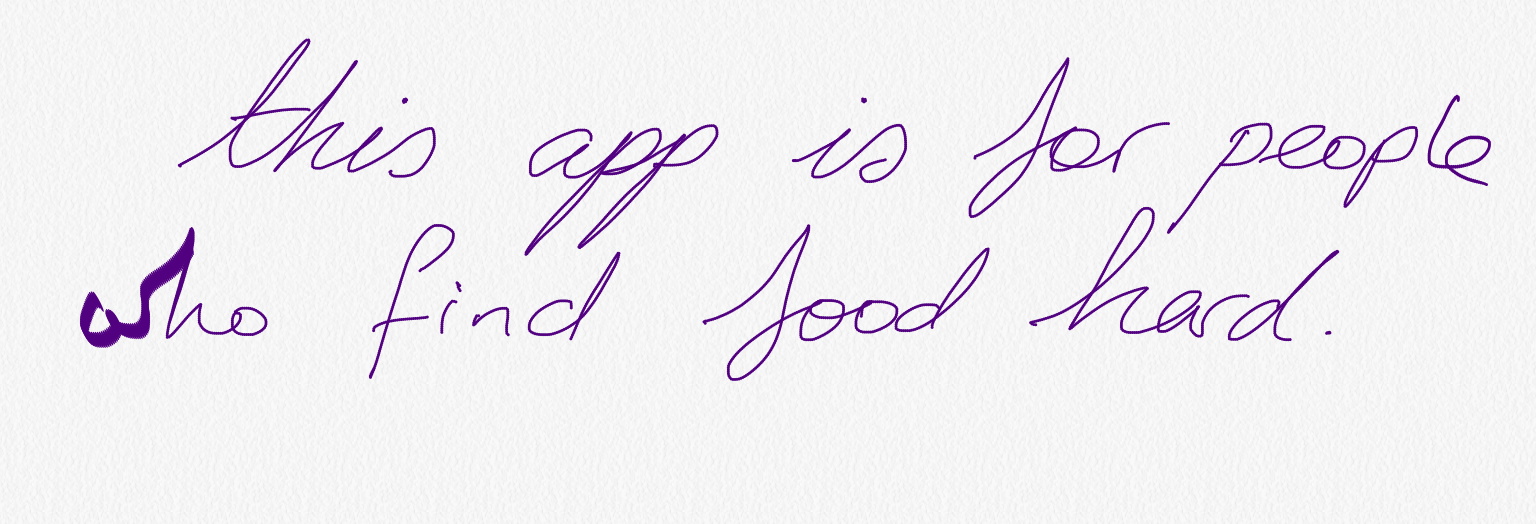 this app is for people
who find food hard.